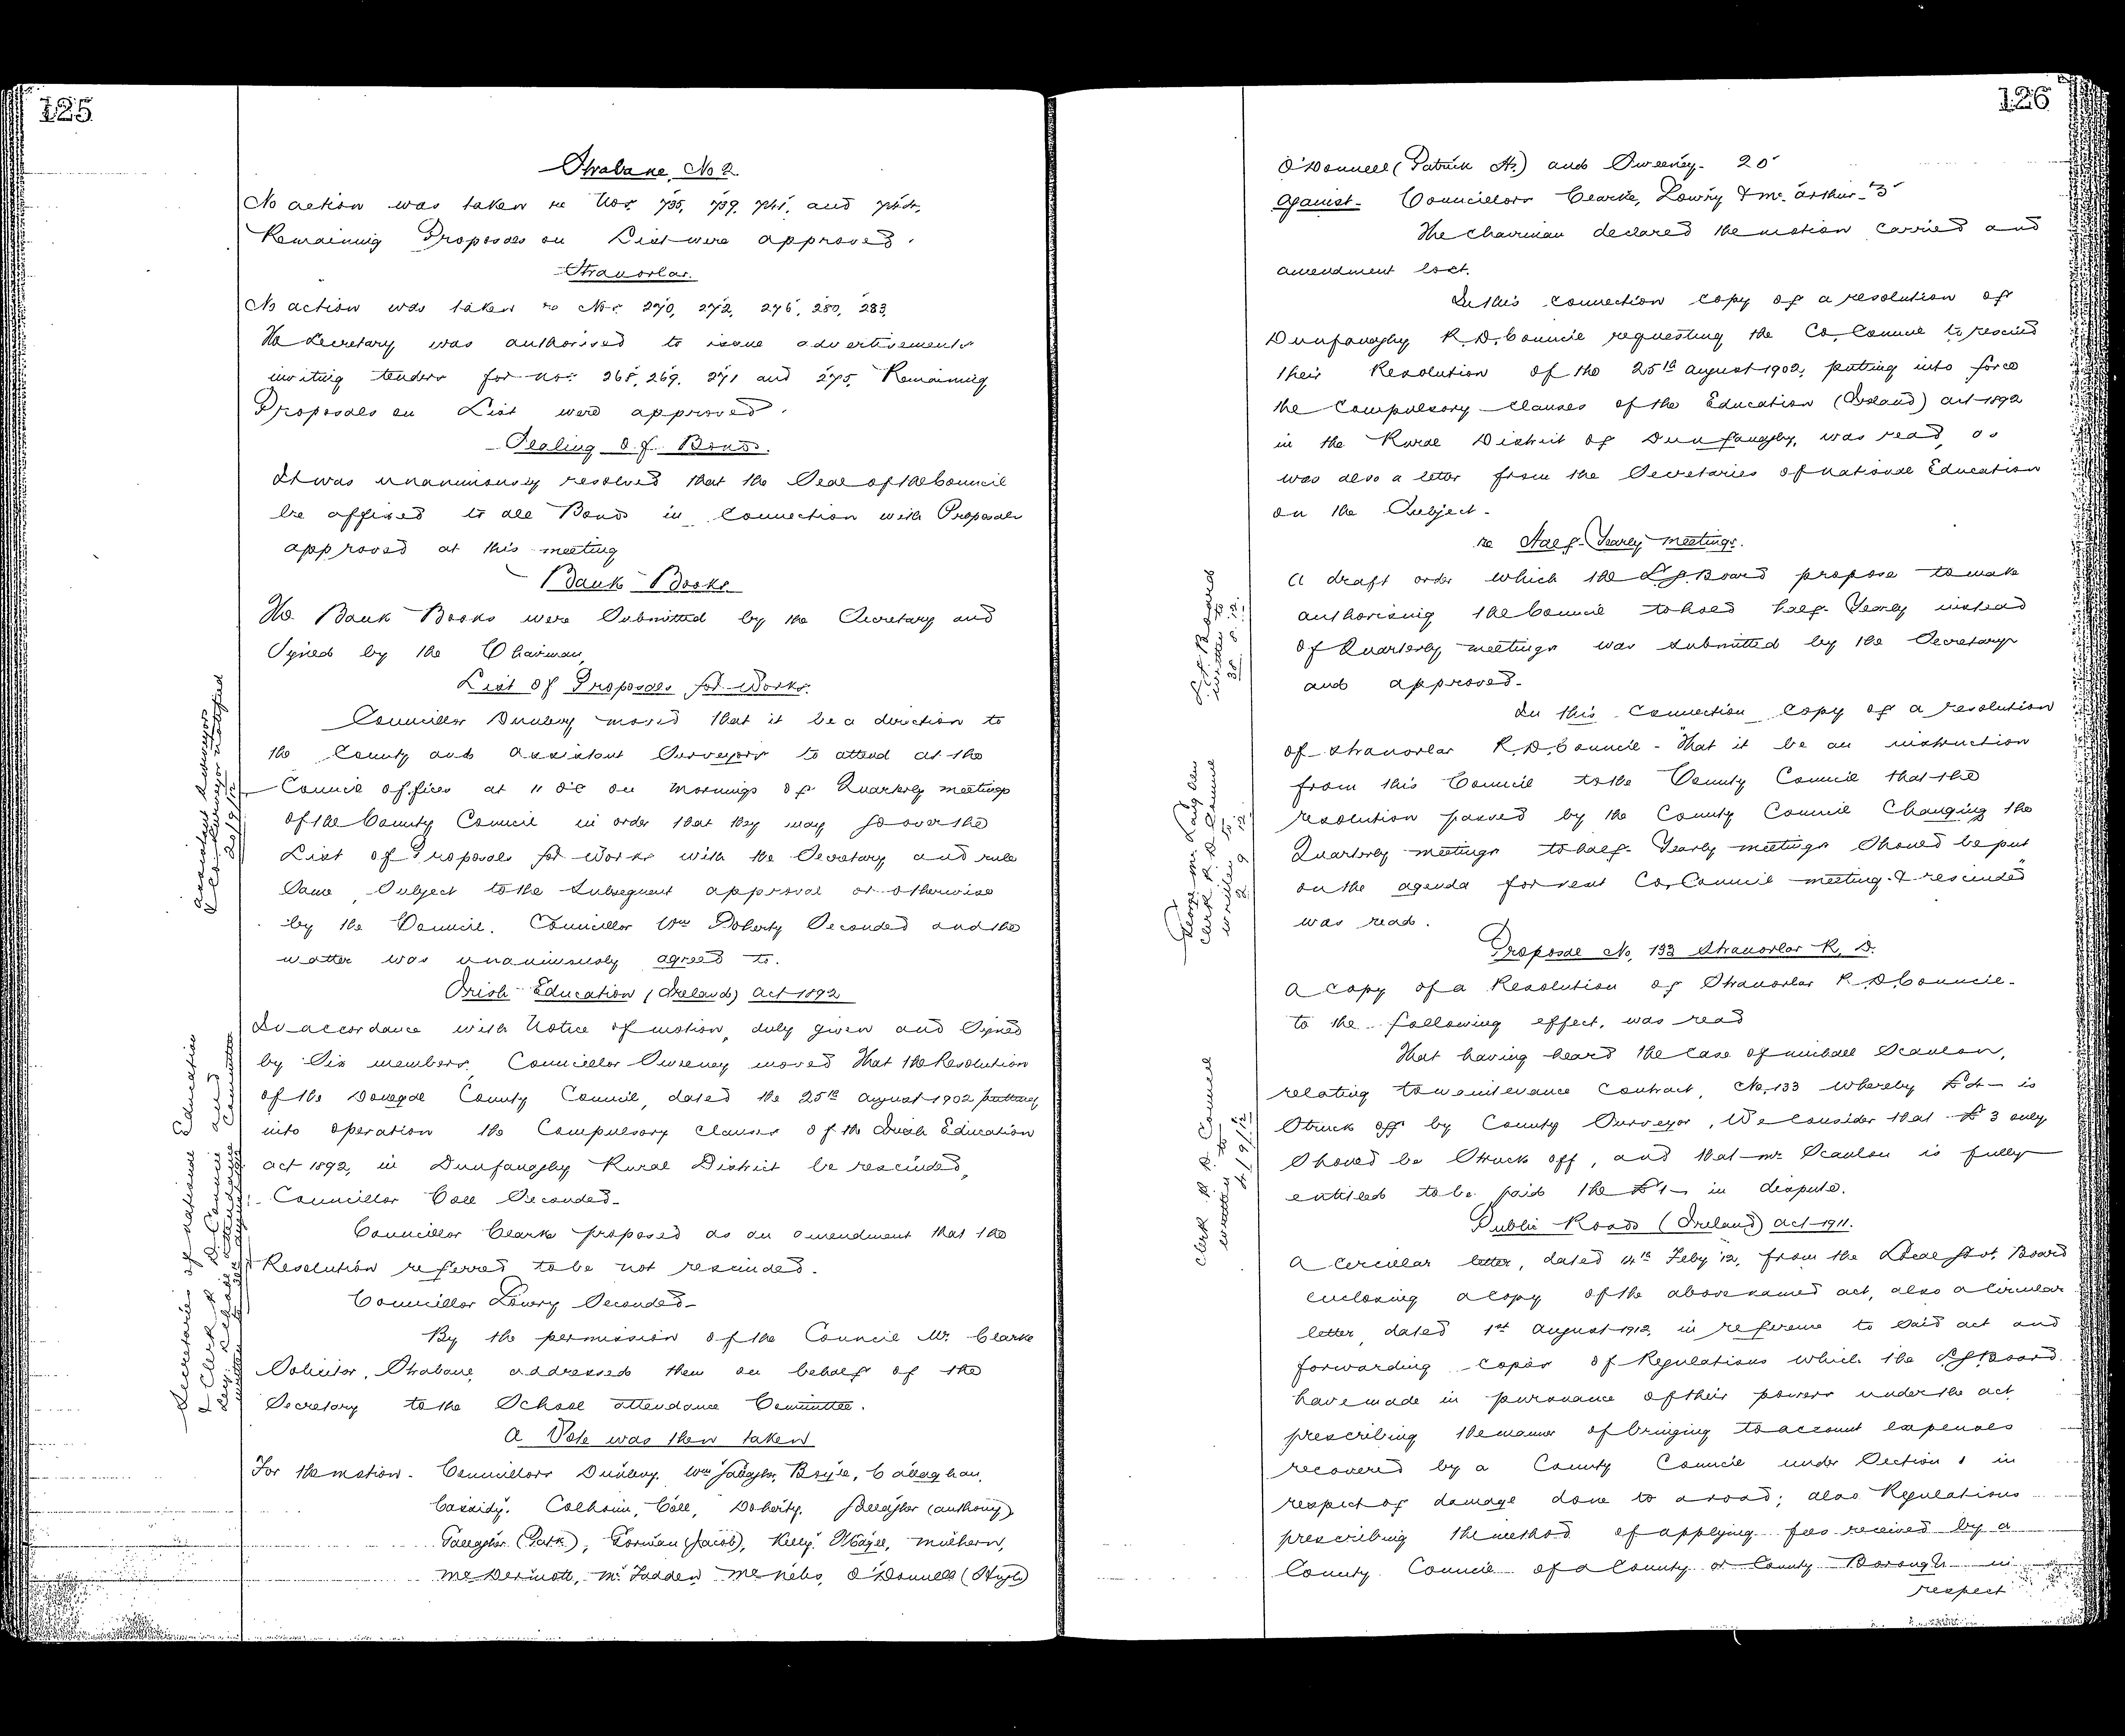 125
Strabane, No 2
No action was taken re Nos. 735, 739, 741, and 744.
Remaining Proposals on List were approved.
Stranorlar.
No action was taken re Nos. 270, 272, 276, 280, 283.
The Secretary was authorised to issue advertisements
inviting tenders for nos. 268, 269, 271 and 275. Remaining
Proposals on List were approved.
Sealing of Bonds.
It was unanimously resolved that the Seal of the Council
be affixed to all Bonds in connection with Proposals
approved at this meeting
Bank Books
The Bank Books were Submitted by the Secretary and
Signed by the Chairman,
List of Proposals for Works.
Councillor Dunlevy moved that it be a direction to
the County and Assistant Surveyors to attend at the
Council offices at 11 o'c on mornings of Quarterly meetings
of the County Council in order that they may go over the
List of Proposals for Works with the Secretary and rule
Same, Subject to the Subsequent approval or otherwise
by the Council. Councillor Wm Doherty Seconded and the
matter was unanimously agreed to.
Assistant Surveyors
& Co. Surveyor notified
20/9/12
Irish Education (Ireland) Act 1892
In accordance with Notice of motion, duly given and Signed
by Six members, Councillor Sweeney moved That the Resolution
of the Donegal County Council, dated the 25th August 1902 putting
into operation the Compulsory Clauses of the Irish Education
Act 1892, in Dunfanaghy Rural District be rescinded,
Councillor Coll Seconded.
Councillor Clarke proposed as an amendment that the
Resolution referred to be not rescinded.
Councillor Lowry Seconded.
By the permission of the Council Mr. Clarke
Solicitor, Strabane addressed them on behalf of the
Secretary to the School attendance Committee.
Secretaries of National Education
& Clerk R. D. Council and
A Vote was then taken
For the motion. Councillors Dunlevy, Wm Gallagher, Boyle, Callaghan,
Cassidy, Colhoun, Coll, Doherty, Gallagher (Anthony),
Gallagher (Patk), Gorman (Jacob), Kelly, Magee, Mulhern,
McDermott, McFadden, McNelis, O'Donnell (Hugh)
126
O'Donnell (Patrick H.) and Sweeney. 20
Against. Councillors Clarke, Lowry & McArthur. 3
The Chairman declared the motion carried and
amendment lost.
In this connection copy of a resolution of
Dunfanaghy R.D. Council requesting the Co. Council to rescind
their Resolution of the 25th August 1902, putting into force
the Compulsory Clauses of the Education (Ireland) Act 1892
in the Rural District of Dunfanaghy, was read, as
was also a letter from the Secretaries of National Education
on the Subject.
re Half-Yearly meetings.
A draft order which the L.G. Board propose to make
authorising the Council to hold half-Yearly instead
of Quarterly meetings was submitted by the Secretary
and approved.
In this connection copy of a resolution
of Stranorlar R.D. Council - That it be an instruction
from this Council to the County Council that the
resolution passed by the County Council Changing the
Quarterly meetings to half-Yearly meetings Should be put
on the agenda for next Co. Council meeting & rescinded
was read.
Proposal No. 133 Stranorlar R. D.
A copy of a Resolution of Stranorlar R.D. Council.
to the following effect, was read
That having heard the case of Michael Scanlon,
relating to maintenance contract, No. 133 whereby £4 - is
Struck off by County Surveyor, We consider that £3 only
Should be Struck off, and that Mr Scanlon is fully
entitled to be paid the £1 - in dispute.
Clerk R. D. Council
written to
4/9/12
Public Roads (Ireland) Act 1911.
A Circular letter, dated 14th Feby '12, from the Local Govt. Board
enclosing a copy of the above named act, also a Circular
letter, dated 1st August 1912, in reference to said act and
forwarding copies of Regulations which the L.G. Board
have made in pursuance of their powers under the act
prescribing the manner of bringing to account expenses
recovered by a County Council under Section 1 in
respect of damage done to a road; also Regulations
prescribing the method of applying fees received by a
County Council of a County or County Borough in
respect